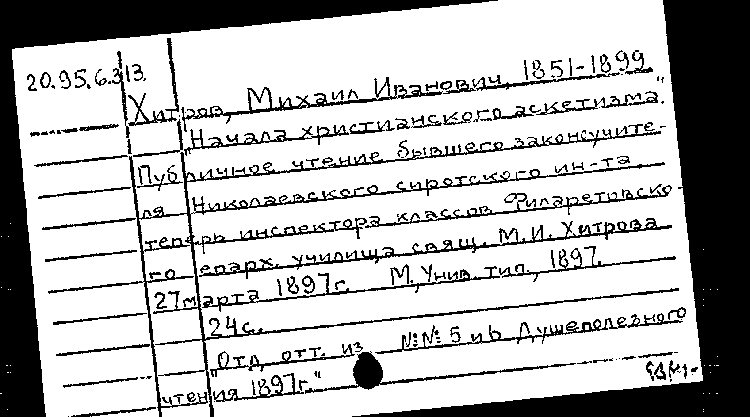 20.95.6.313.
Хитров, Михаил Иванович, 1851-1899.
"Начала христианского аскетизма."
Публичное чтение бывшего законоучите-
ля Николаевского сиротского ин-та,
теперь инспектора классов Филаретовско-
го епарх. училища свящ. М.И. Хитрова
27 марта 1897г. М., Унив. тип., 1897.
24с.
"Отд. отт. из №№ 5 и 6 Душеполезного
чтения 1897г."